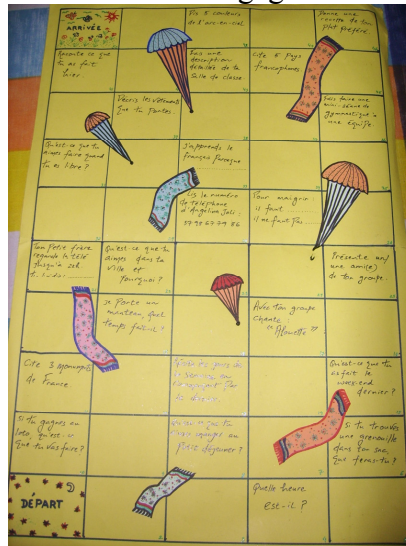 ARRIVÉE
les 3 couleurs
de l'arc-en-ciel
Donne une
recette de ton
plat préféré.
Raconte ce que
tu as fait
hier.
Fais une
description
détaillée de ta
salle de classe
Cite 5 Pays
francophones
Décris les vêtements
que tu portes.
Fais faire une
mini-séance de
gymnastique à
une équipe
Qu'est-ce que tu
aimes faire quand
tu es libre ?
J'apprends le
français parceque
Lis le numéro
de téléphone
d'Angelina Joli :
57 98 67 79 86
Pour maigrir :
il faut
il ne faut pas
Ton petit frère
regarde la télé
jusqu'à 22h
tu lui dis
Qu'est-ce que tu
aimes dans ta
ville et
pourquoi ?
Présente un/
une ami(e)
de ton groupe.
Je porte un
manteau, quel
temps fait-il ?
Avec ton groupe
chante
"Alouette"
Cite 3 monuments
de France
les jours de
la semaine en
commençant par
Qu'est-ce que tu
as fait le
week-end
dernier ?
Si tu gagnes au
loto, qu'est-ce
que tu vas faire ?
Qu'est-ce que tu
mangé au
petit déjeuner ?
Si tu trouves
une grenouille
dans ton sac,
que feras-tu ?
DÉPART
Quelle heure
est-il ?